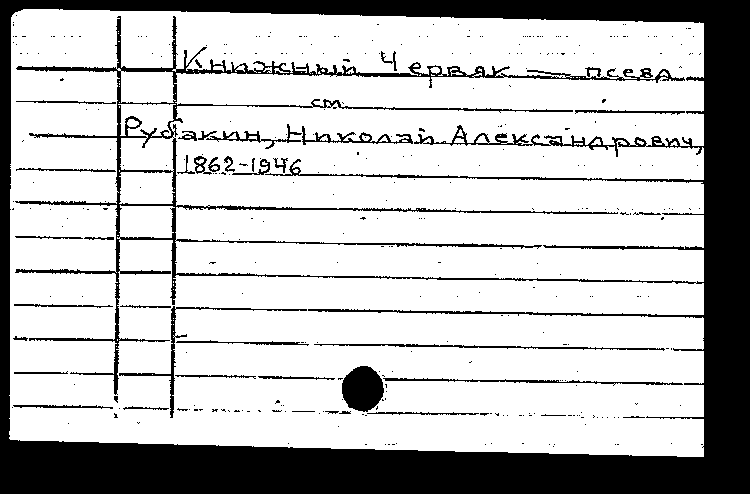 Книжный Червяк — псевд
см.
Рубакин, Николай Александрович,
1862-1946